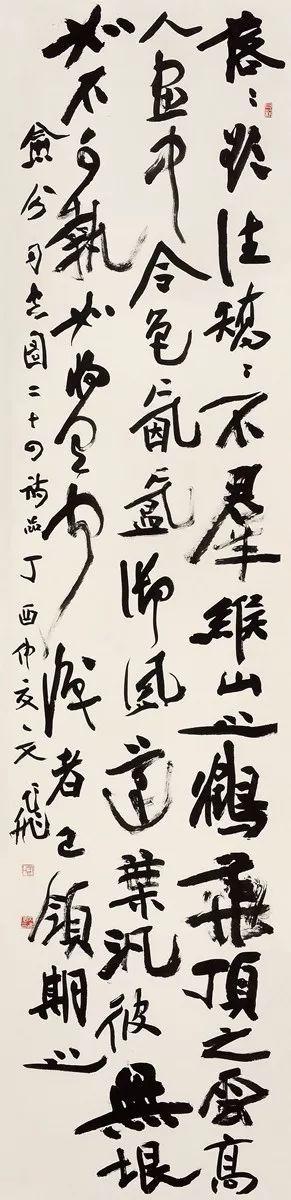 落〻欲往矯〻不羣緱山之鶴華頂之雲高
人畫中令色氤氳御風蓬葉汎彼無垠
如不可執如將有聞識者已領期之
愈分司空圖二十四詩品丁酉仲夏